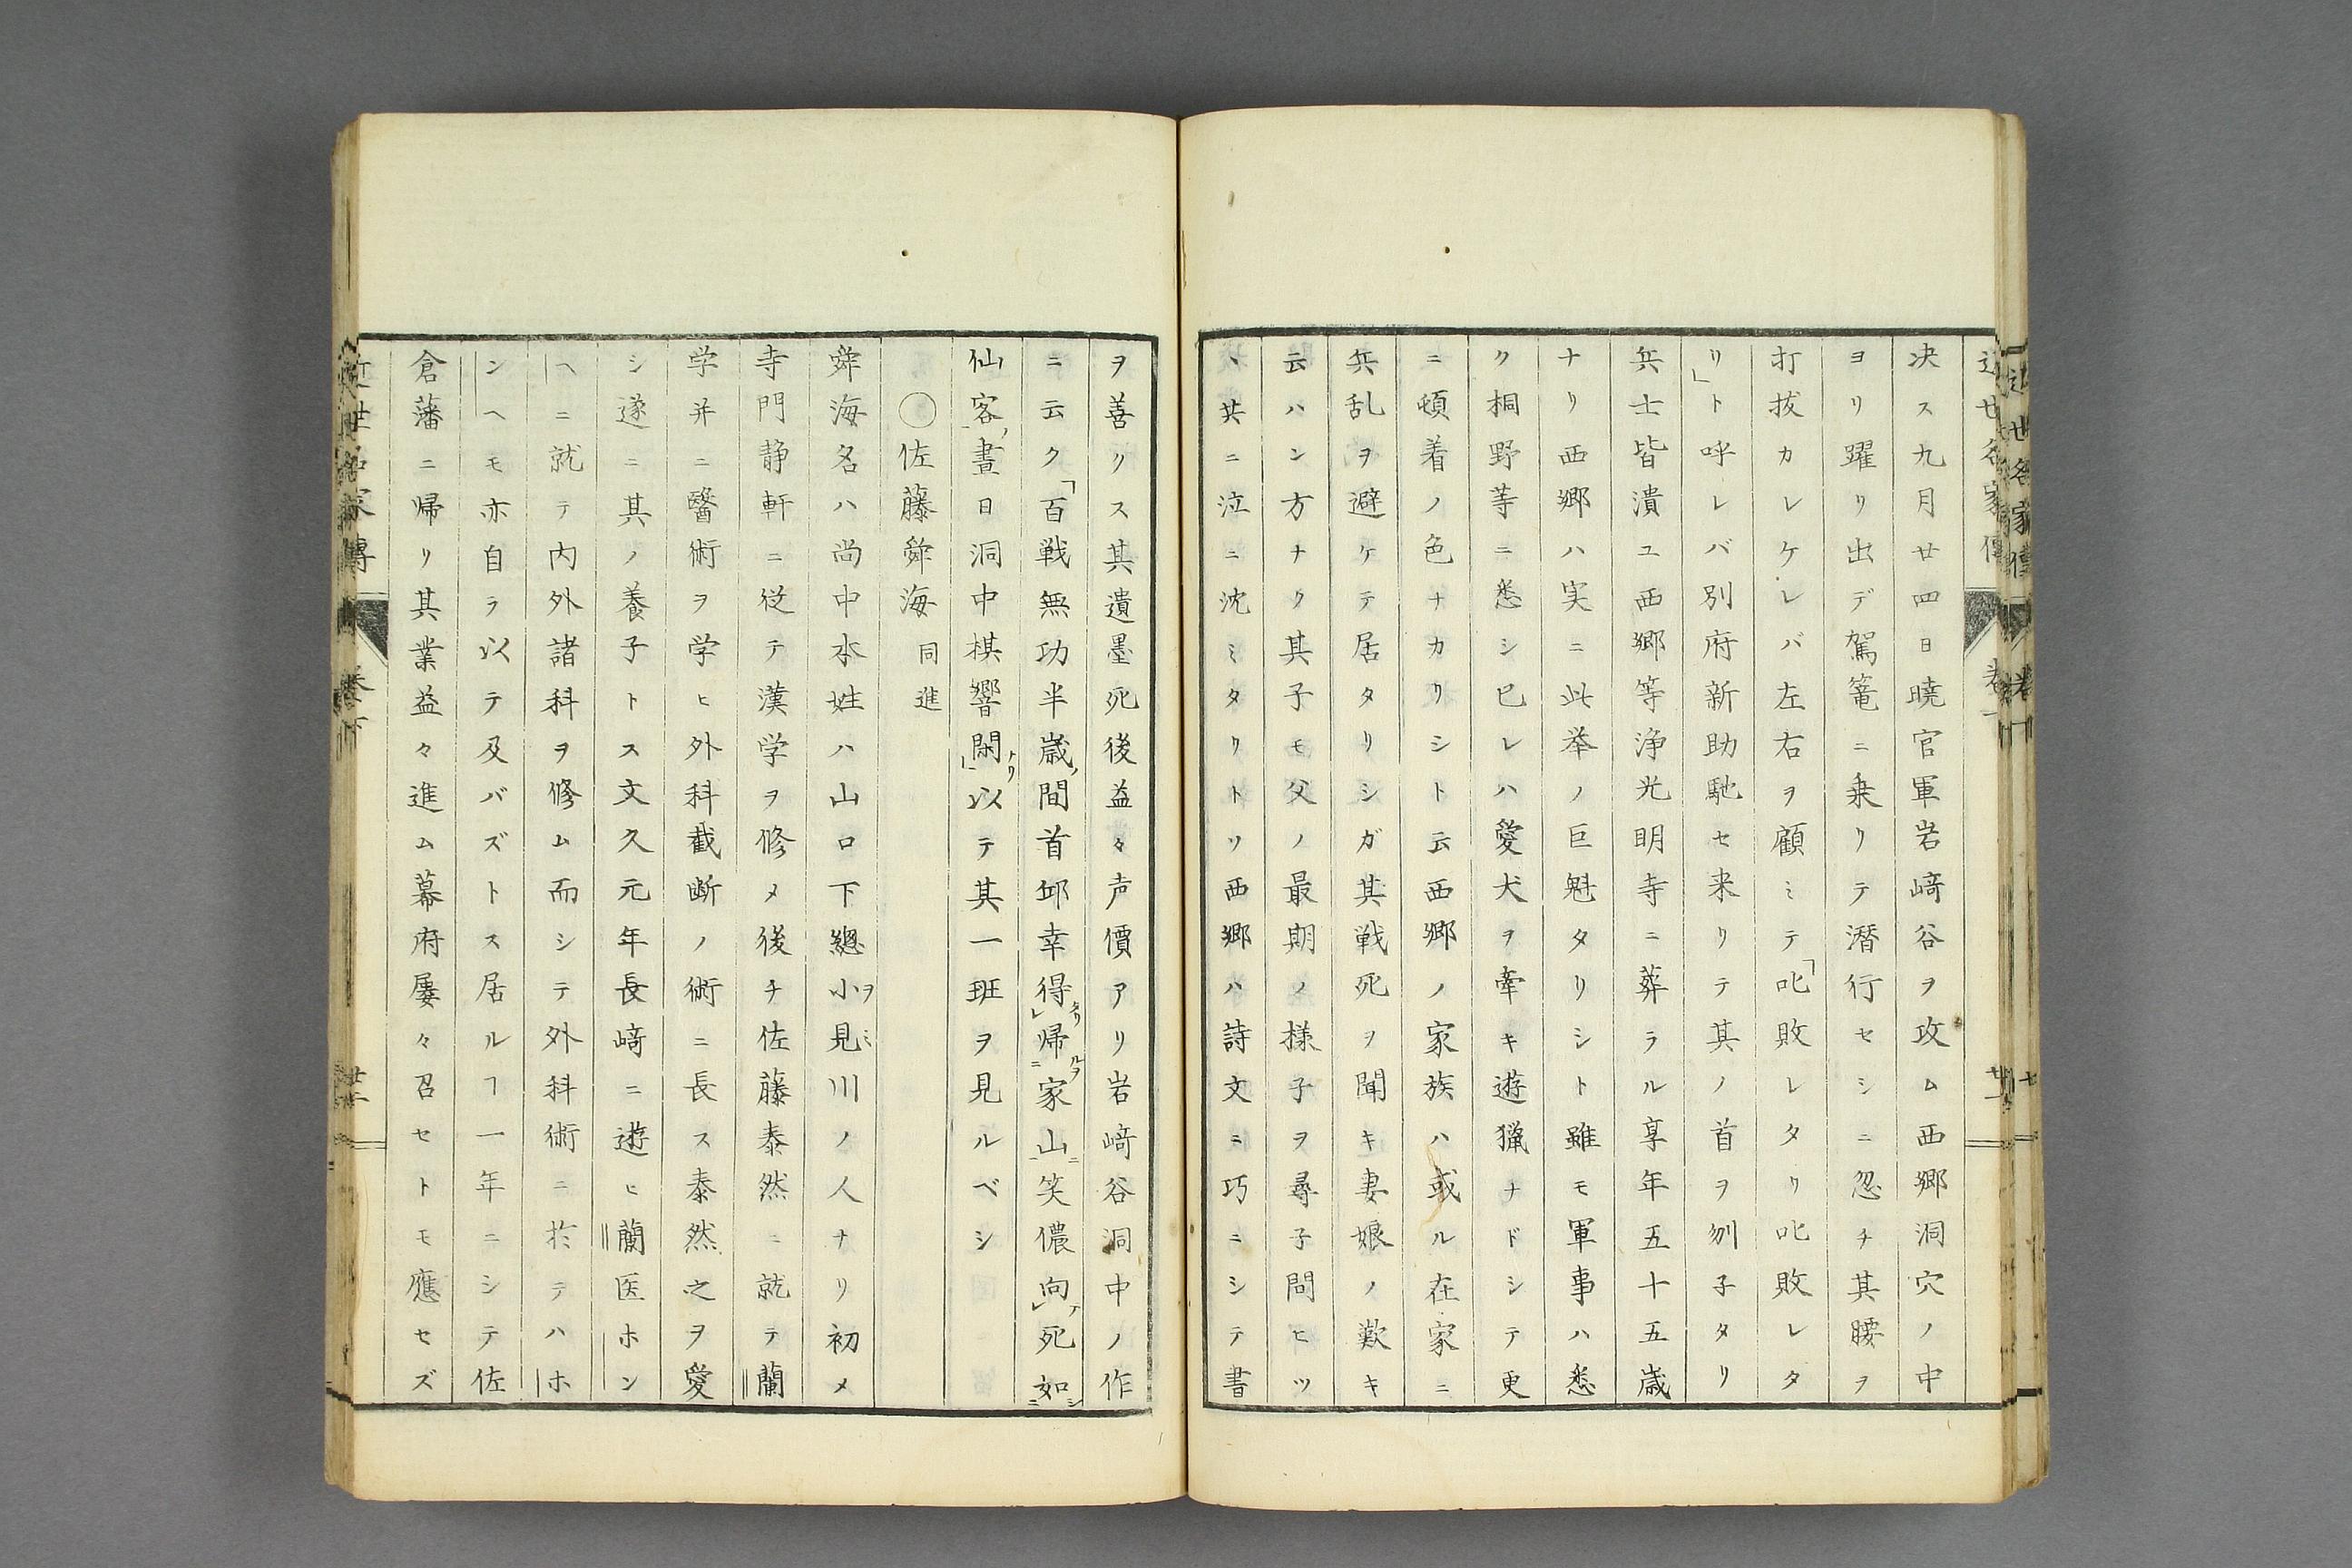 決ス九月廿四日曉官軍岩﨑谷ヲ攻ム西郷洞穴ノ中
ヨリ躍リ出デ駕篭ニ乗リテ潛行セシニ忽チ其腰ヲ
打拔カレケレバ左右ヲ顧ミテ「叱敗レタリ叱敗レタ
リ」ト呼レバ別府新助馳セ来リテ其ノ首ヲ刎子タリ
兵士皆潰ユ西郷等浄光明寺ニ葬ラル享年五十五歳
ナリ西郷ハ実ニ此挙ノ巨魁タリシト雖モ軍事ハ悉
ク桐野等ニ悉シ已レハ愛犬ヲ牽キ遊猟ナドシテ更
ニ頓着ノ色ナカリシト云西郷ノ家族ハ或ル在家ニ
兵乱ヲ避ケテ居タリシガ其戦死ヲ聞キ妻娘ノ歎キ
云ハン方ナク其子モ父ノ最期ノ様子ヲ尋子問ヒツ
丶共ニ泣ニ沈ミタリトソ西郷ハ詩文ニ巧ニシテ書
ヲ善クス其遺墨死後益々声價アリ岩﨑谷洞中ノ作
ニ云ク「百戦無功半歳ノ間首邱幸得タリ㆑帰ルヿヲ㆓家山ニ㆒笑儂向テ㆑死如シ㆓
仙客ノ㆒晝日洞中棋響閑ナリ」以テ其一班ヲ見ルベシ
〇佐藤舜海 同進
舜海名ハ尚中本姓ハ山口下總小見川ヲミノ人ナリ初メ
寺門静軒ニ従テ漢学ヲ修メ後チ佐藤泰然ニ就テ蘭
学并ニ醫術ヲ学ヒ外科截断ノ術ニ長ス泰然之ヲ愛
シ遂ニ其ノ養子トス文久元年長﨑ニ遊ヒ蘭医ホン
ヘニ就テ内外諸科ヲ修ム而シテ外科術ニ於テハホ
ンヘモ亦自ラ以テ及バズトス居ルヿ一年ニシテ佐
倉藩ニ帰リ其業益々進ム幕府屡々召セトモ應セズ